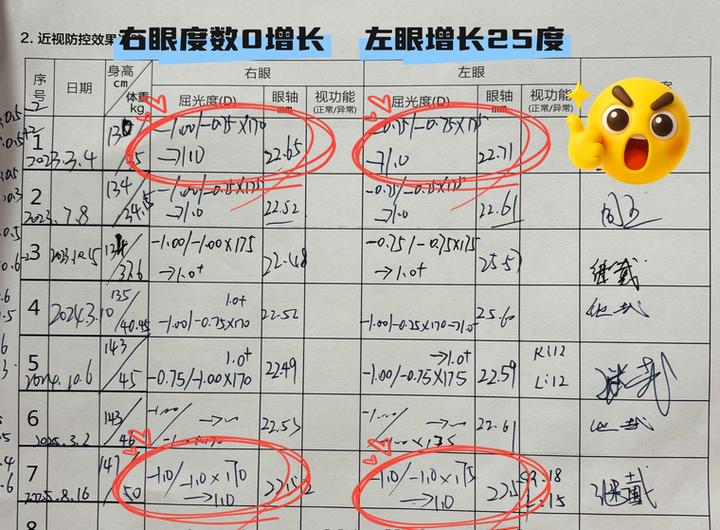 右眼度数0增长 左眼增长25度
2. 近视防控效果
序号 日期 身高cm 体重kg 右眼 左眼
屈光度(D) 眼轴mm 视功能(正常/异常) 屈光度(D) 眼轴mm 视功能(正常/异常)
1 2023.3.4 -1.00/-0.75×170 →1.0 22.65 -0.75/-0.75×175 →1.0 22.71
2 2023.7.8 134/34.5 -1.00/-0.75×175 →1.0 22.52 -0.75/-0.75×175 →1.0 22.61
3 2023.10.15 -1.00/-1.00×175 →1.0+ 22.48 -0.75/-0.75×175 →1.0+ 25.57 继戴
4 2024.3.10 135/40.45 1.0+ -1.00/-0.75×170 22.52 -1.00/-0.75×170→1.0+ 25.60
5 2024.10.6 143/45 1.0+ -0.75/-1.00×170 22.49 →1.0+ -1.00/-0.75×175 22.59
6 2025.3.2 143/46 -1.00/-1.00×170 22.53 -1.00/-1.00×175 22.61
7 2025.8.16 147/50 -1.0/-1.0×170 →1.0 -1.0/-1.0×175 →1.0 继戴